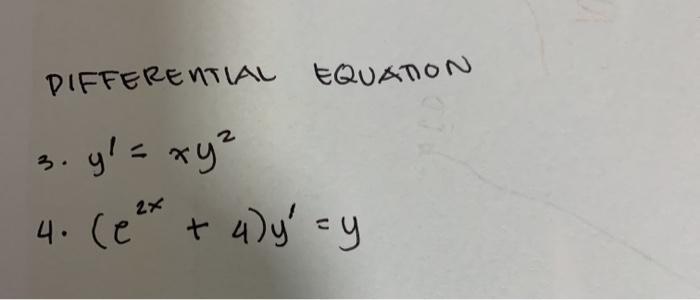 DIFFERENTIAL EQUATION
3. y' = xy²
4. (e²ˣ + 4)y' = y